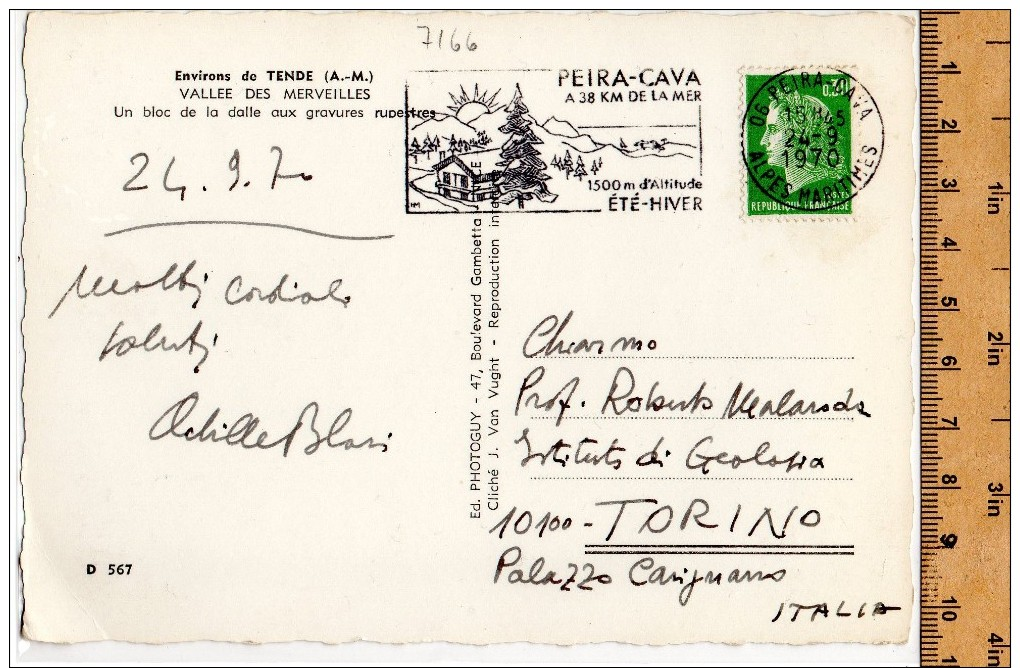 7166
Environs de TENDE (A.-M.)
VALLEE DES MERVEILLES
Un bloc de la dalle aux gravures rupestres
PEIRA-CAVA
A 38 KM DE LA MER
1500 m d'Altitude
ÉTÉ-HIVER
06 PEIRA-CAVA
24-9
1970
ALPES MARITIMES
0,30
POSTES
REPUBLIQUE FRANÇAISE
24.9.70
Molti cordiali
saluti
Achille Blasi
D 567
Ed. PHOTOGUY - 47, Boulevard Gambetta
Cliché J. Van Vught - Reproduction
Chiar.mo
Prof. Roberto Malaroda
Istituto di Geologia
10100 - TORINO
Palazzo Carignano
ITALIA
1 2 3 4 5 6 7 8 9 10
1/in 2/in 3/in 4/in